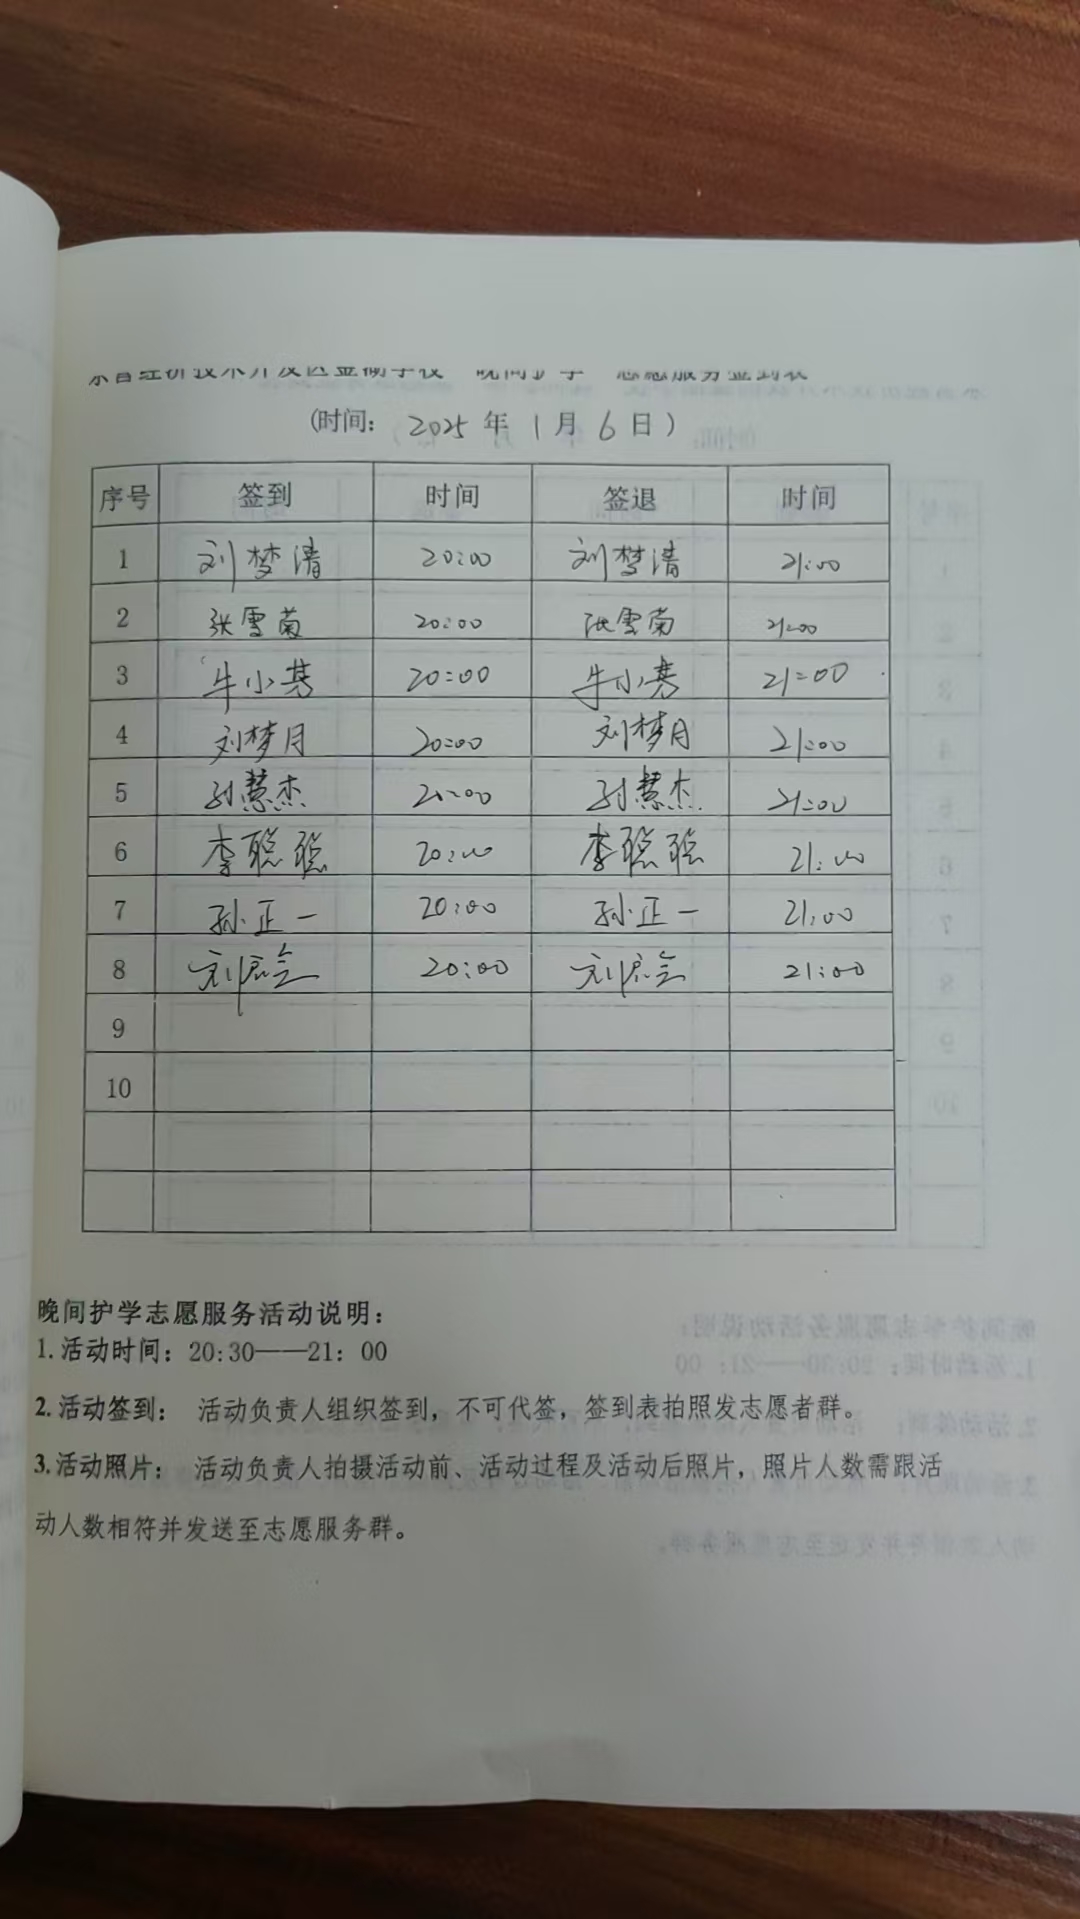 经济技术开发区金湖学校"晚间护学"志愿服务签到表
(时间: 2025 年 1 月 6 日)
序号 签到 时间 签退 时间
1 刘梦清 20:00 刘梦清 21:00
2 张雪菊 20:00 张雪菊 21:00
3 牛小 20:00 牛小 21:00
4 刘梦月 20:00 刘梦月 21:00
5 慧杰 20:00 慧杰 21:00
6 李聪聪 20:00 李聪聪 21:00
7 孙正一 20:00 孙正一 21:00
8 刘 20:00 刘 21:00
9
10
晚间护学志愿服务活动说明:
1.活动时间: 20:30——21: 00
2.活动签到: 活动负责人组织签到,不可代签,签到表拍照发志愿者群。
3.活动照片: 活动负责人拍摄活动前、活动过程及活动后照片,照片人数需跟活
动人数相符并发送至志愿服务群。